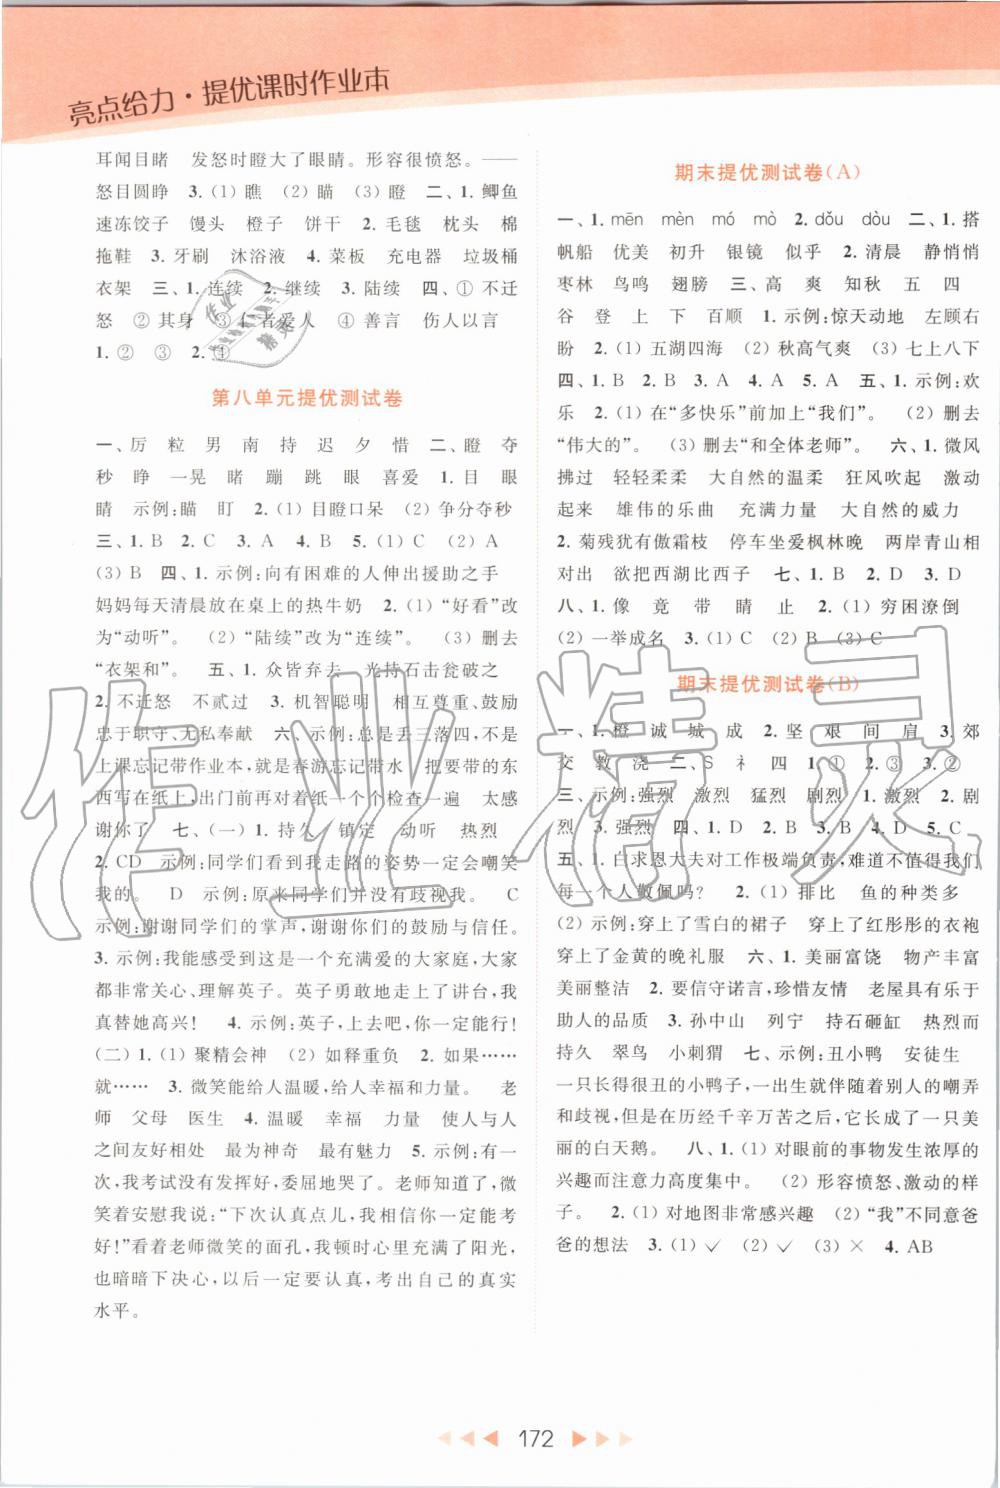 亮点给力·提优课时作业本
耳闻目睹　发怒时瞪大了眼睛。形容很愤怒。——
怒目圆睁　3. (1) 瞧　(2) 瞄　(3) 瞪　二、1. 鲫鱼
速冻饺子　馒头　橙子　饼干　2. 毛毯　枕头　棉
拖鞋　3. 牙刷　沐浴液　4. 菜板　充电器　垃圾桶
衣架　三、1. 连续　2. 继续　3. 陆续　四、① 不迁
怒　② 其身　③ 仁者爱人　④ 善言　伤人以言
1. ②　③　2. ④
第八单元提优测试卷
一、厉　粒　男　南　持　迟　夕　惜　二、瞪　夺
秒　睁　一晃　睹　蹦　跳　眼　喜爱　1. 目　眼
睛　示例:瞄　盯　2. (1) 目瞪口呆　(2) 争分夺秒
三、1. B　2. C　3. A　4. B　5. (1) C　(2) A
(3) B　四、1. 示例:向有困难的人伸出援助之手
妈妈每天清晨放在桌上的热牛奶　2. (1) “好看”改
为“动听”。　(2) “陆续”改为“连续”。　(3) 删去
“衣架和”。　五、1. 众皆弃去　光持石击瓮破之
2. 不迁怒　不贰过　3. 机智聪明　相互尊重、鼓励
忠于职守、无私奉献　六、示例:总是丢三落四,不是
上课忘记带作业本,就是春游忘记带水　把要带的东
西写在纸上,出门前再对着纸一个个检查一遍　太感
谢你了　七、(一) 1. 持久　镇定　动听　热烈
2. CD　示例:同学们看到我走路的姿势一定会嘲笑
我的。　D　示例:原来同学们并没有歧视我。　C
示例:谢谢同学们的掌声,谢谢你们的鼓励与信任。
3. 示例:我能感受到这是一个充满爱的大家庭,大家
都非常关心、理解英子。英子勇敢地走上了讲台,我
真替她高兴!　4. 示例:英子,上去吧,你一定能行!
(二) 1. (1) 聚精会神　(2) 如释重负　2. 如果……
就……　3. 微笑能给人温暖,给人幸福和力量。　老
师　父母　医生　4. 温暖　幸福　力量　使人与人
之间友好相处　最为神奇　最有魅力　5. 示例:一
次,我考试没有发挥好,委屈地哭了。老师知道了,微
笑着安慰我说:“下次认真点儿,我相信你一定能考
好!”看着老师微笑的面孔,我顿时心里充满了阳光,
也暗暗下决心,以后一定要认真,考出自己的真实
水平。
期末提优测试卷(A)
一、1. mēn　mèn　mó　mò　2. dǒu　dòu　二、1. 搭
帆船　优美　初升　银镜　似乎　2. 清晨　静悄悄
枣林　鸟鸣　翅膀　三、高　爽　知秋　五　四
谷　登　上　下　百顺　1. 示例:惊天动地　左顾右
盼　2. (1) 五湖四海　(2) 秋高气爽　(3) 七上八下
四、1. B　2. B　3. B　4. A　5. A　五、1. 示例:欢
乐　2. (1) 在“多快乐”前加上“我们”。　(2) 删去
“伟大的”。　(3) 删去“和全体老师”。　六、1. 微风
拂过　轻轻柔柔　大自然的温柔　狂风吹起　激动
起来　雄伟的乐曲　充满力量　大自然的威力
2. 菊残犹有傲霜枝　停车坐爱枫林晚　两岸青山相
对出　欲把西湖比西子　七、1. B　2. D　3. D
八、1. 像　竟　带　睛　止　2. (1) 穷困潦倒
(2) 一举成名　3. (1) C　(2) B　(3) C
期末提优测试卷(B)
一、1. 橙　诚　城　成　2. 坚　艰　间　肩　3. 郊
交　教　浇　二、S　礻　四　1. ①　2. ③　3. ②
三、示例:强烈　激烈　猛烈　剧烈　1. 激烈　2. 剧
烈　3. 强烈　四、1. D　2. B　3. B　4. D　5. C
五、1. 白求恩大夫对工作极端负责,难道不值得我们
每一个人敬佩吗?　2. (1) 排比　鱼的种类多
(2) 示例:穿上了雪白的裙子　穿上了红彤彤的衣袍
穿上了金黄的晚礼服　六、1. 美丽富饶　物产丰富
美丽整洁　2. 要信守诺言,珍惜友情　老屋具有乐于
助人的品质　3. 孙中山　列宁　持石砸缸　热烈而
持久　翠鸟　小刺猬　七、示例:丑小鸭　安徒生
一只长得很丑的小鸭子,一出生就伴随着别人的嘲弄
和歧视,但是在历经千辛万苦之后,它变成了一只美
丽的白天鹅。　八、1. (1) 对眼前的事物发生浓厚的
兴趣而注意力高度集中。　(2) 形容愤怒、激动的样
子。　2. (1) 对地图非常感兴趣　(2) “我”不同意爸
爸的想法　3. (1) ✓　(2) ✓　(3) ×　4. AB
172
作业精灵